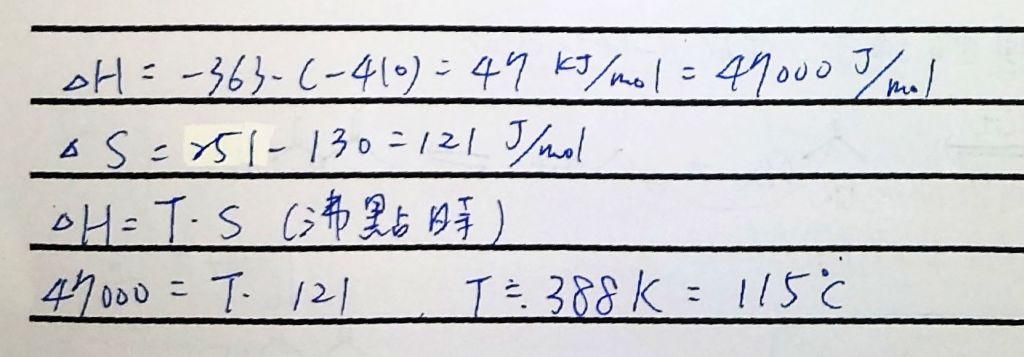 △H = -363-(-410) = 47 KJ/mol = 47000 J/mol
△S = 251-130=121 J/mol
△H=T·S (沸點時)
47000 = T· 121 T≒388K = 115℃